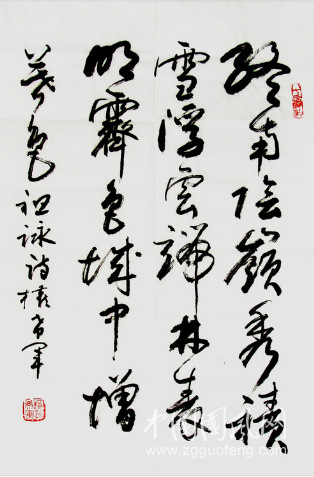 終南陰嶺秀積
雪浮云端林表
明霽色城中增
暮色祖詠詩
中国国风网
www.zgguofeng.com